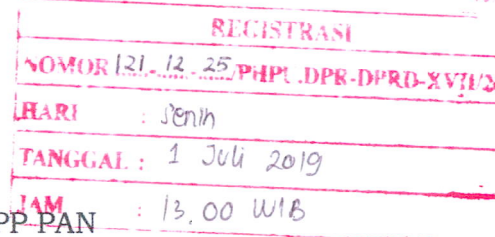 REGISTRASI
NOMOR 121-12-25/PHPU.DPR-DPRD-XVII/2
HARI : Senin
TANGGAL : 1 Juli 2019
JAM : 13.00 WIB
PP PAN